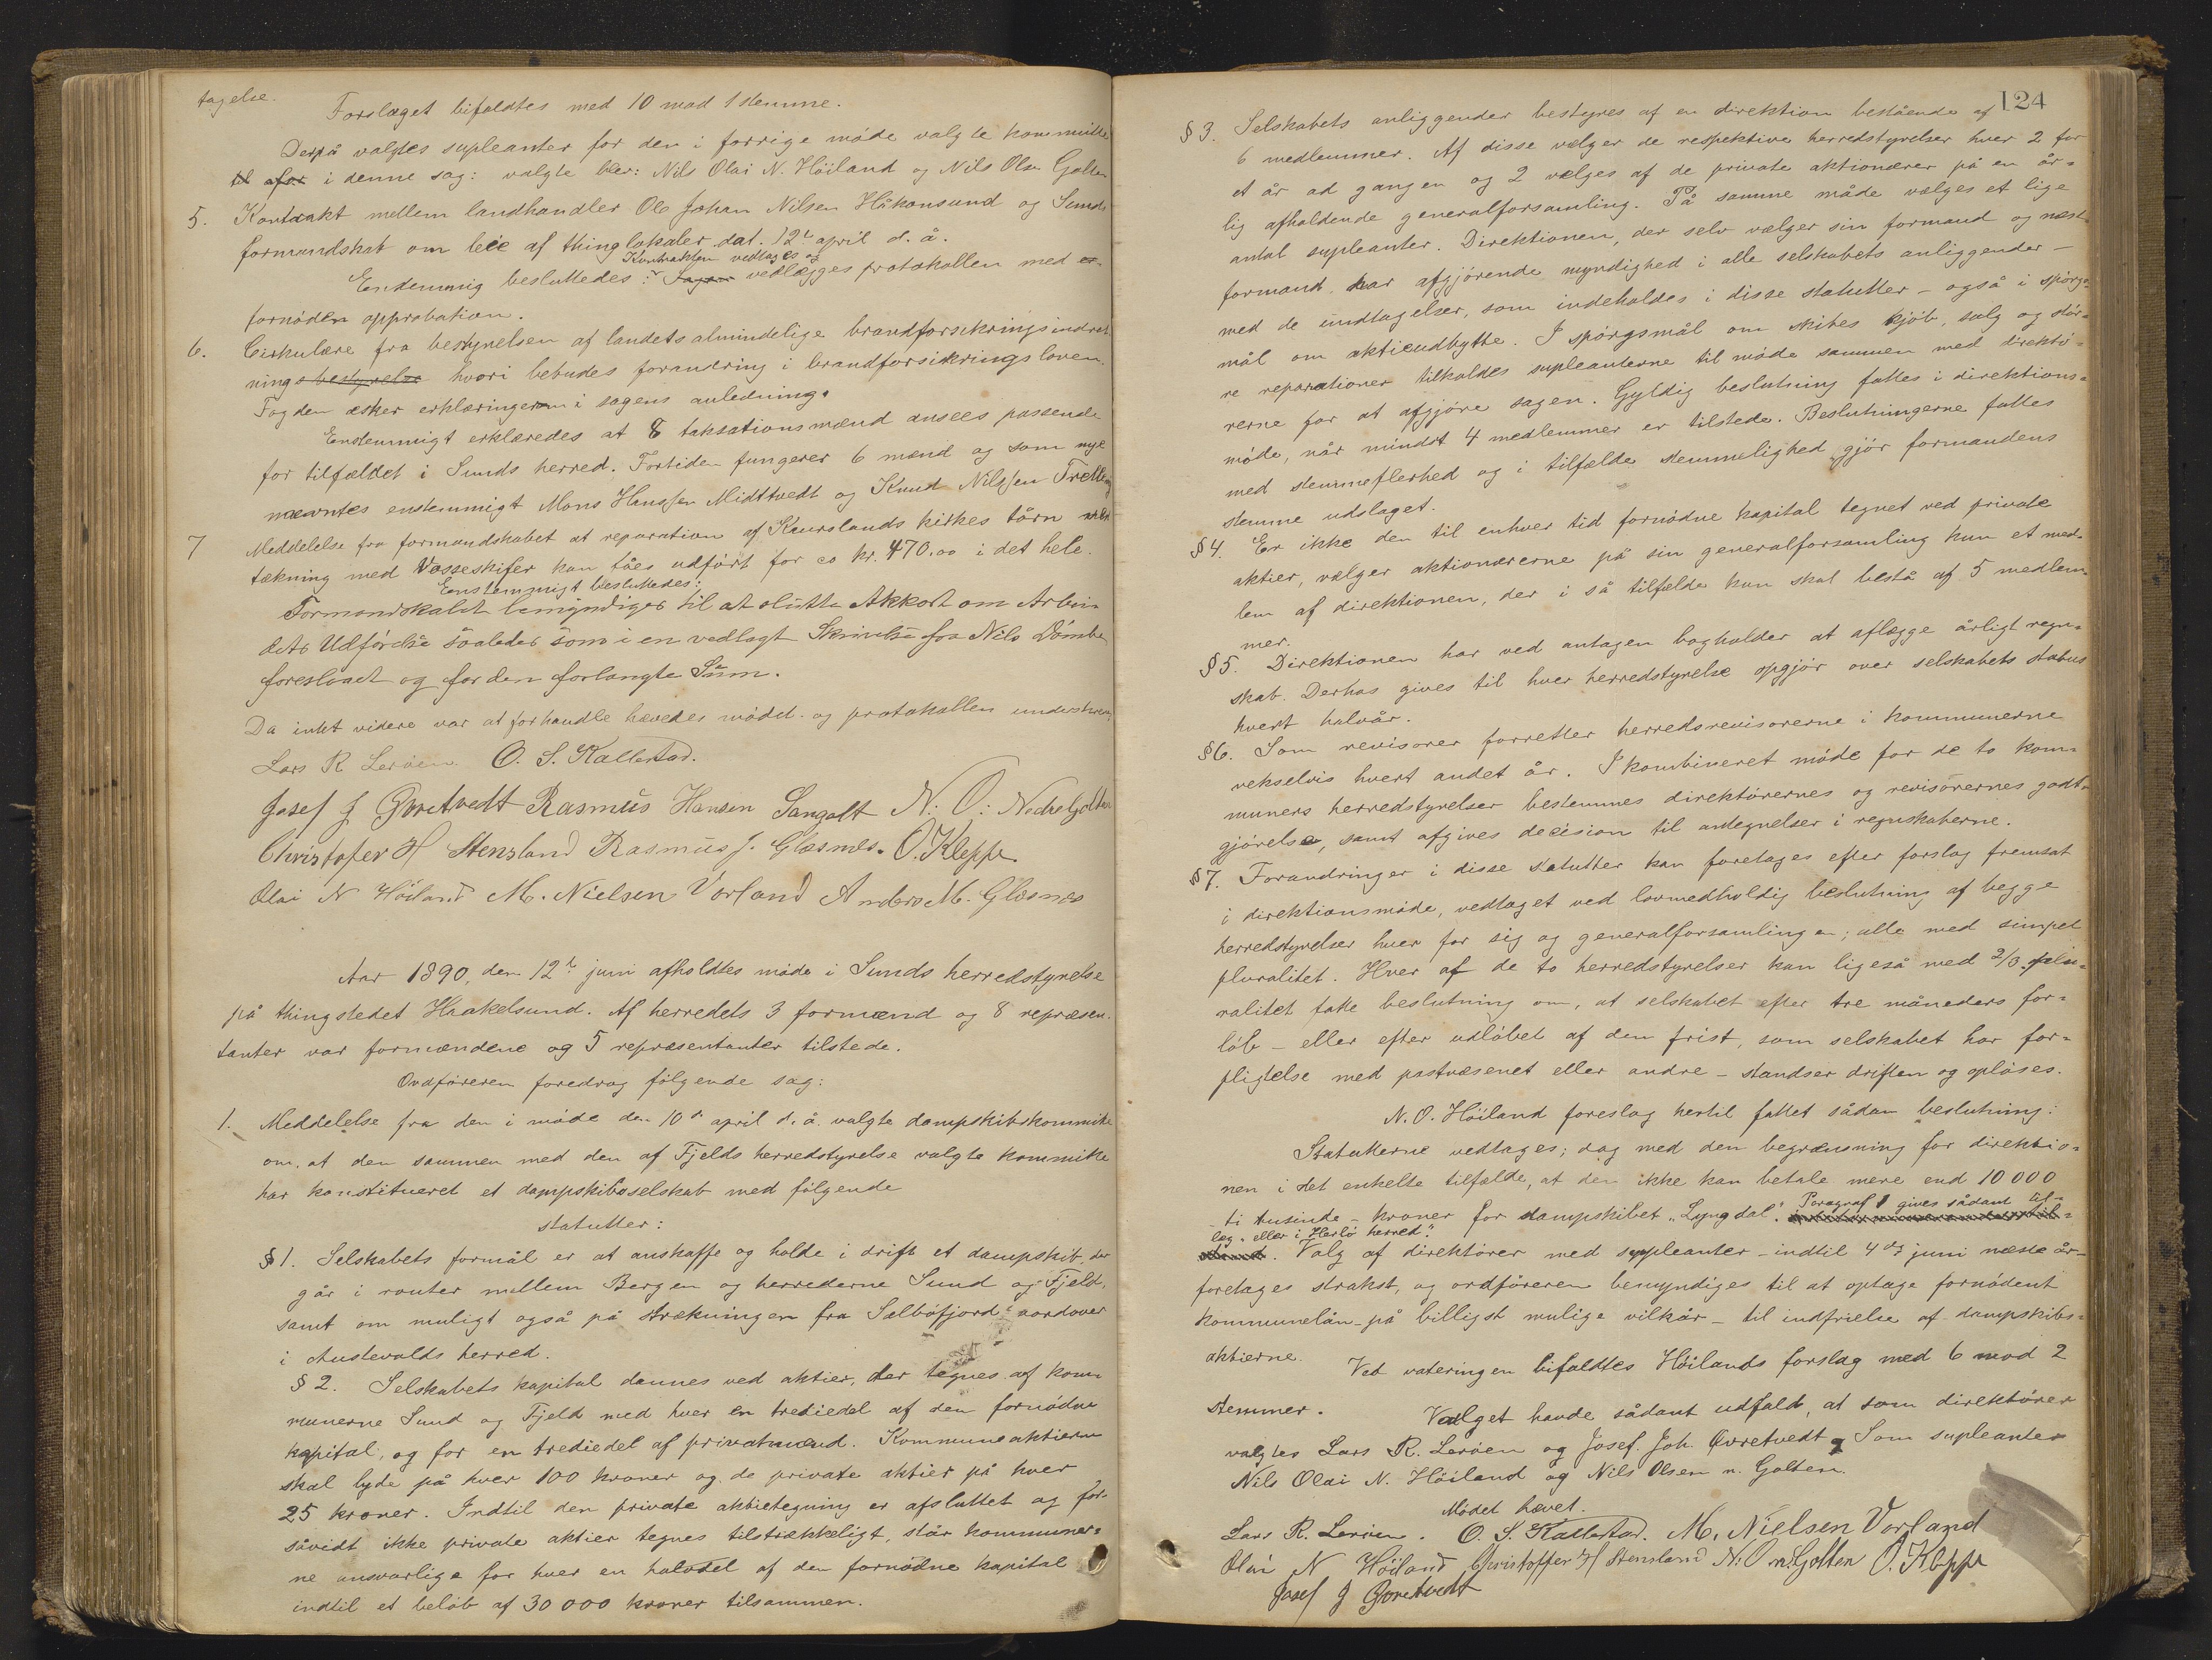 tagelse.
Forslaget bifaldtes med 10 mod 1 stemme.
Derpå valgtes supleanter for den i forrige møde valgte kommitte
til afor i denne sag: valgte blev: Nils Olai N. Höiland og Nils Olsn Golten
5. Kontrakt mellem landhandler Ole Johan Nilsen Håkonsund og Sunds
formandskab om leie af thinglokaler dat. 12te april d. å.
Kontrakten vedtages og
Enstemmig besluttedes: Sagen vedlægges protokollen med
fornöden approbation.
6. Cirkulære fra bestyrelsen af landets almindelige brandforsikringsindret
nings bestyrelse hvori bebudes forandring i brandforsikringsloven.
Fogden æsker erklæringer i sagens anledning.
Enstemmigt erklæredes at 8 taksationsmænd ansees passende
for tilfældet i Sunds herred. Fortiden fungerer 6 mænd og som nye
nævntes enstemmigt Mons Hanssen Midttvedt og Knud Nilssen Trelle
7 Meddelelse fra formandskabet at reparation af Kaurslands kirkes tårn
tækning med Vosseskifer kan fåes udført for ca kr. 470.00 i det hele.
Enstemmigt besluttedes:
Formandskabet bemyndiges til at slutte Akkort om Arbei-
dets Udförelse saaledes som i en vedlagt Skrivelse fra Nils Dömbe
foreslaaet og for den forlangte Sum.
Da intet videre var at forhandle hævedes mödet og protokollen underskreve
Lars R Leröen. O. S. Kallestad.
Josef J Øvretvedt Rasmus Hansen Sangolt N: O: Nedre Golten
Christofer H Stensland Rasmus J. Glæsnes. O. Kleppe
Olai N Höiland M. Nielsen Vorland Anders M. Glæsnes
Aar 1890, den 12te juni afholdtes möde i Sunds herredstyrelse
på thingstedet Haakelsund. Af herredets 3 formænd og 8 repræsen-
tanter var formændene og 5 repræsentanter tilstede.
Ordföreren foredrog fölgende sag:
1. Meddelelse fra den i möde den 10de april d. å. valgte dampskibskommite
om, at den sammen med den af Fjelds herredstyrelse valgte kommitte
har konstitueret et dampskibsselskab med fölgende
statutter:
§ 1. Selskabets formål er at anskaffe og holde i drift et dampskib, der
går i router mellem Bergen og herrederne Sund og Fjeld,
samt om muligt også på strækningen fra Selböfjord nordover
i Austevolds herred.
§ 2. Selskabets kapital dannes ved aktier, der tegnes af kom-
munerne Sund og Fjeld med hver en trediedel af den fornödne
kapital, og for en trediedel af privatmænd. Kommuneaktierne
skal lyde på hver 100 kroner og de private aktier på hver
25 kroner. Indtil den private aktietegning er afsluttet og for-
såvidt ikke private aktier tegnes tilstrækkeligt, står kommuner=
ne ansvarlige for hver en halvdel af den fornödne kapital
indtil et belöb af 30 000 kroner tilsammen.
124
§ 3. Selskabets anliggender bestyres af en direktion bestående af
6 medlemmer. Af disse vælger de respektive herredstyrelser hver 2 for
et år ad gangen og 2 vælges af de private aktionærer på en år=
lig afholdende generalforsamling. På samme måde vælges et lige
antal supleanter. Direktionen, der selv vælger sin formand og næst-
formand, har afgjörende myndighed i alle selskabets anliggender -
med de undtagelser, som indeholdes i disse statutter - også i spörgs-
mål om aktieudbytte. I spörgsmål om skibes kjöb, salg og stör=
re reparationer tilkaldes supleanterne til möde sammen med direktö=
rerne for at afgjöre sagen. Gyldig beslutning fattes i direktions=
möde, når mindst 4 medlemmer er tilstede. Beslutningerne fattes
med stemmeflerhed og i tilfælde stemmelighed gjör formandens
stemme udslaget.
§ 4. Er ikke den til enhver tid fornödne kapital tegnet ved private
aktier, vælger aktionærerne på sin generalforsamling kun et med-
lem af direktionen, der i så tilfælde kun skal bestå af 5 medlem-
mer.
§ 5. Direktionen har ved antagen bogholder at aflægge årligt regn=
skab. Derhos gives til hver herredstyrelse opgjör over selskabets status
hvert halvår.
§ 6. Som revisorer forretter herredsrevisorerne i kommunerne
vekselvis hvert andet år. I kombineret möde for de to kom-
muners herredstyrelser bestemmes direktörernes og revisorernes godt-
gjörelse, samt afgives decision til antegnelser i regnskaberne.
§ 7. Forandringer i disse statutter kan foretages efter forslag fremsat
i direktionsmöde, vedtaget ved lovmedholdig beslutning af begge
herredstyrelser hver for sig og generalforsamlingen; alle med simpel
pluralitet. Hver af de to herredstyrelser kan ligeså med 2/3 plu=
ralitet fatte beslutning om, at selskabet efter tre måneders for=
löb - eller efter udlöbet af den frist, som selskabet har for=
pligtelse med postvæsenet eller andre - standser driften og oplöses.
N. O. Höiland foreslog hertil fattet sådan beslutning:
Statutterne vedtages; dog med den begrænsning for direktio=
nen i det enkelte tilfælde, at den ikke kan betale mere end 10 000
- ti tusinde - kroner for dampskibet "Lyngdal". Paragraf 1 gives sådant til-
læg "eller i Herlö herred".
Valg af direktörer med suppleanter - indtil 4de juni næste år -
foretages strakst, og ordföreren bemyndiges til at optage fornödent
kommunelån - på billigst mulige vilkår - til indfrielse af dampskibs=
aktierne.
Ved voteringen bifaldtes Höilands forslag med 6 mod 2
stemmer.
Valget havde sådant udfald, at som direktörer
valgtes Lars R. Leröen og Josef Joh. Øvretvedt. Som supleanter
Nils Olai N. Höiland og Nils Olsen n. Golten.
Mödet hævet.
Lars R. Leröen. O. S. Kallestad. M. Nielsen Vorland
Olai N Höiland Christoffer H Stensland N. O n. Golten O. Kleppe
Josef J Øvretvedt